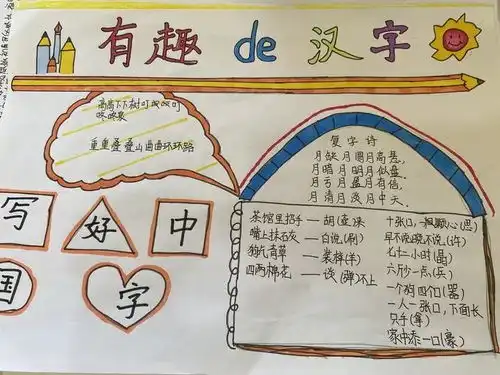 有趣de汉字
高高下下树叮叮咚咚
重重叠叠山曲曲环环路
复字诗
月缺月圆月高悬,
月暗月明月似盘,
月亏月盈月有信,
月清月淡月中天。
写
好
中
国
字
茶馆里招手——胡(壶)来
嘴上抹石灰——白说(刷)
狗吃青草——装样(羊)
四两棉花——谈(弹)不上
十张口,一颗心(思)
早不说晚不说(许)
七十一小时(晶)
六斤少一点(兵)
一个狗四个口(器)
一人一张口,下面长
只手(拿)
家中添一口(豪)